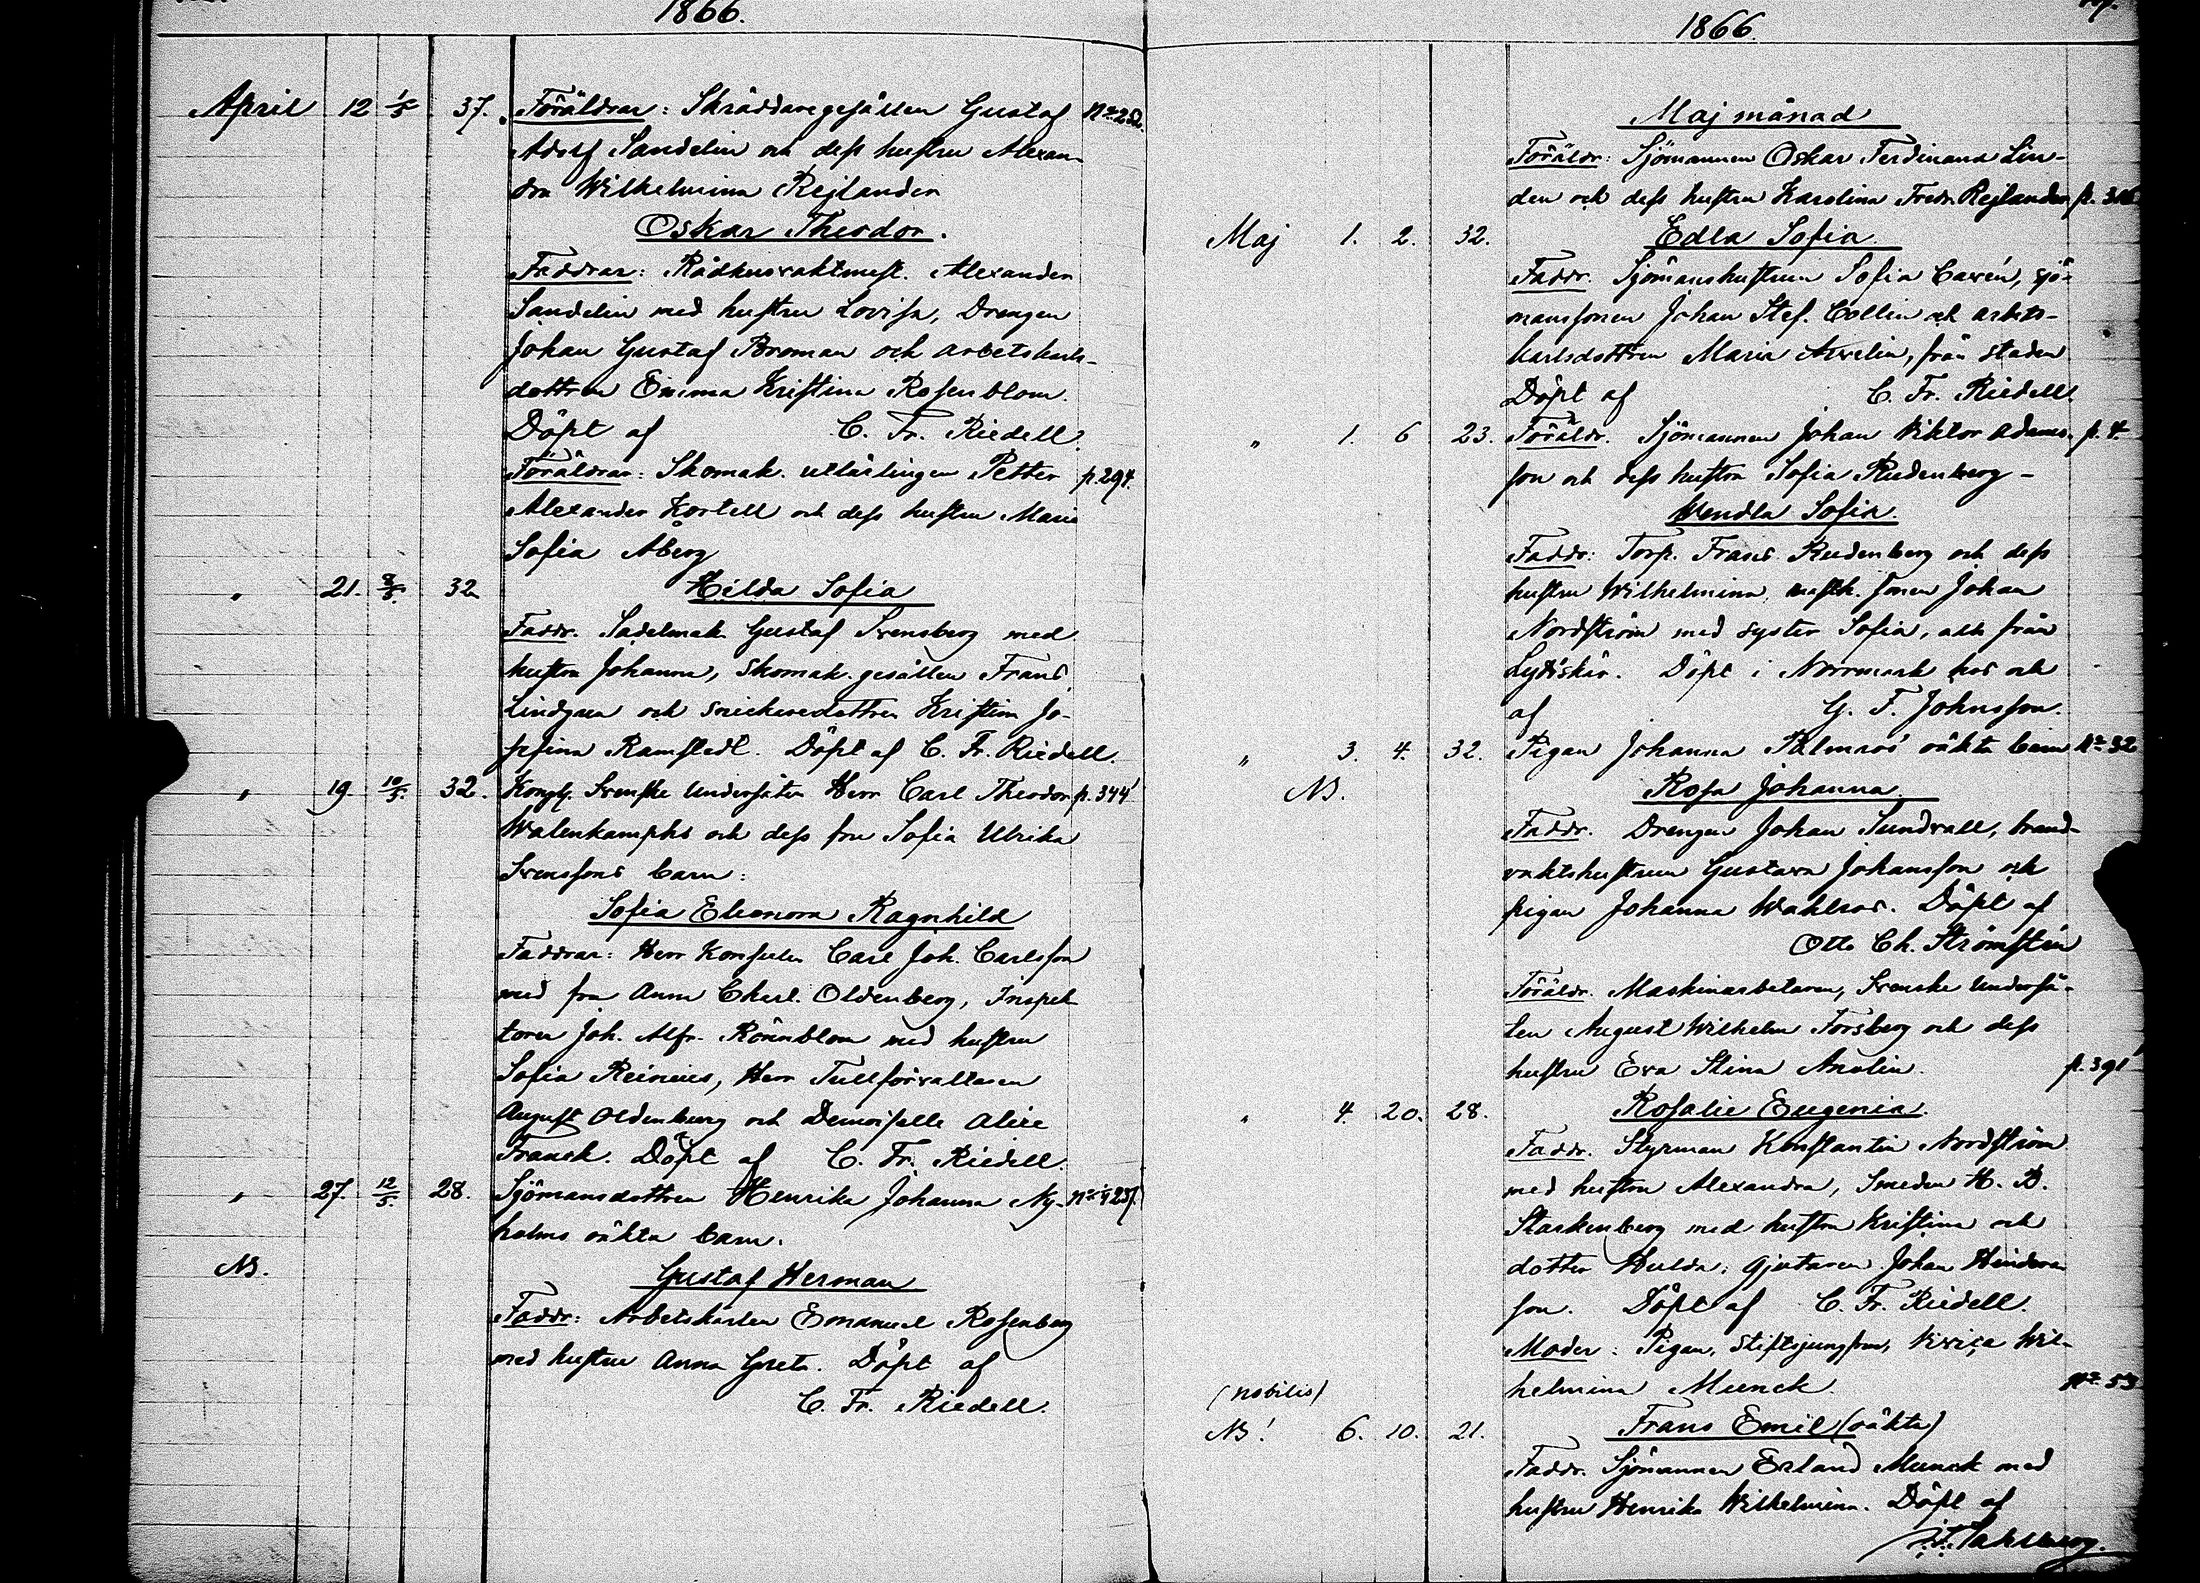 1866.
April 12 1/5 37. Föräldrar: Skräddaregesällen Gustaf No 252.
Adolf Sandelin och dess hustru Alexan-
dra Wilhelmina Rejlander
Oskar Theodor.
Faddrar: Rådhusvaktmest. Alexander
Sandelin med hustru Lovisa, Drengen
Johan Gustaf Broman och arbetskarls-
dottren Emma Kristina Rosenblom.
Döpt af C. Fr. Riedell.
Föräldrar: Skomak. utlärlingen Petter p. 294.
Alexander Kortell och dess hustru Maria
Sofia Åberg
" 21. 8/5. 32 Hilda Sofia
Faddr. Sadelmak. Gustaf Svensberg med
hustru Johanna, skomak. gesällen Frans
Lindgren och snickaredottren Kristina Jo-
sefina Ramstedt. Döpt af C. Fr. Riedell.
" 19. 10/5. 32. Kongl. Svenske Undersåten Herr Carl Theodor p. 344
Walenkamphs och dess fru Sofia Ulrika
Svenssons barn:
Sofia Eleonora Ragnhild
Faddrar: Herr Konsuln Carl Joh. Carlsson
med fru Anna Charl. Oldenberg, Inspek-
toren Joh. Alfr. Rönnblom med hustru
Sofia Reineus, Herr Tullförvaltaren
August Oldenburg och Demoiselle Alice
Franck. Döpt af C. Fr. Riedell.
" 27. 12/5. 28. Sjömansdottren Henrika Johanna Ny-
holms oäkta barn.
NB. Gustaf Herman
Faddr: Arbetskarlen Emanuel Rosenberg
med hustru Anna Greta. Döpt af
C. Fr. Riedell.
1866.
Maj månad
Föräldr: Sjömannen Oskar Ferdinand Lin-
den och dess hustru Karolina Fredr. Rejlander p. 306
Maj 1. 2. 32. Edla Sofia.
Faddr. Sjömanshustrun Sofia Cavén, sjö-
manssonen Johan Stef. Collin och arbets-
karlsdottren Maria Avelin, från staden
Döpt af C. Fr. Riedell.
" 1. 6 23. Föräldr. Sjömannen Johan Viktor Adams- p. 4.
son och dess hustru Sofia Rudenberg -
Wendla Sofia.
Faddr: Torp. Frans Rudenberg och dess
hustru Wilhelmina, sonen Johan
Nordström med syster Sofia, alla från
Lyttskär. Döpt i Norrmark hos och
af G. F. Johnsson.
" 3. 4. 32. Pigan Johanna Palmros' oäkta barn No 32
NB. Rosa Johanna.
Faddr. Drengen Johan Sundvall, brand-
vaktshustrun Gustava Johansson och
pigan Johanna Wahlros. Döpt af
Otto Ch. Strömsten
Föräldr. Maskinarbetaren, Svenske Underså-
ten August Wilhelm Forsberg och dess
hustru Eva Stina Anolin. p. 391
" 4. 20. 28. Rosalie Eugenia.
Faddr. Styrman Konstantin Nordström
med hustru Alexandra, Smeden H. B.
Starkenberg med hustru Kristina och
dotter Hulda, gjutaren Johan Hinders-
son. Döpt af C. Fr. Riedell.
Moder: Pigan, stiftsjungfrun, Wil-
(nobilis) helmina Munck No 53
NB! 6. 10. 21. Frans Emil (oäkta)
Faddr. Sjömannen Erland Munck med
hustru Henrika Wilhelmina. Döpt af